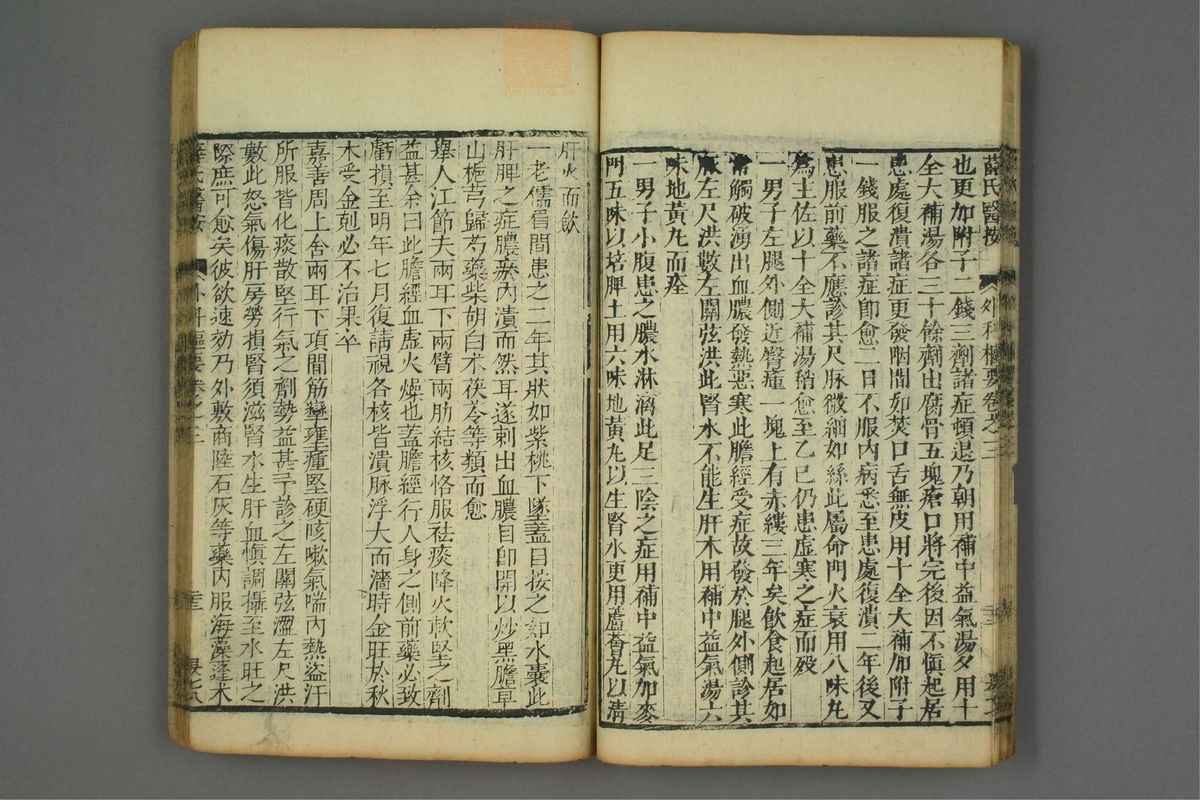 薛氏醫按 外科樞要卷之三
也更加附子二錢三劑諸症頓退乃朝用補中益氣湯夕用十
全大補湯各三十餘劑出腐骨五塊瘡口將完後因不愼起居
患處復潰諸症更發咽間如焚口舌無皮用十全大補加附子
一錢服之諸症卽愈二日不服內病悉至患處復潰二年後又
患服前藥不應診其尺脉微細如絲此屬命門火衰用八味丸
爲主佐以十全大補湯稍愈至乙巳仍患虛寒之症而殁
一男子左腿外側近臀腫一塊上有赤縷三年矣飮食起居如
常觸破湧出血膿發熱惡寒此膽經受症故發於腿外側診其
脉左尺洪數左關弦洪此腎水不能生肝木用補中益氣湯六
味地黃丸而痊
一男子小腹患之膿水淋漓此足三陰之症用補中益氣加麥
門五味以培脾土用六味地黃丸以生腎水更用蘆薈丸以淸
肝火而歛
一老儒眉間患之二年其狀如紫桃下墜蓋目按之如水囊此
肝脾之症膿瘀內潰而然耳遂刺出血膿目卽開以炒黑膽草
山梔芎歸芍藥柴胡白术茯苓等類而愈
舉人江節夫兩耳下兩臂兩肋結核恪服祛痰降火軟堅之劑
益甚余曰此膽經血虛火燥也蓋膽經行人身之側前藥必致
虧損至明年七月復請視各核皆潰脉浮大而濇時金旺於秋
木受金剋必不治果卒
嘉善周上舍兩耳下項間筋攣壅腫堅硬咳嗽氣喘內熱盜汗
所服皆化痰散堅行氣之劑勢益甚予診之左關弦澀左尺洪
數此怒氣傷肝房勞損腎須滋腎水生肝血愼調攝至水旺之
際庶可愈矣彼欲速効乃外敷商陸石灰等藥內服海藻蓬术
薛氏醫按 外科樞要卷之三